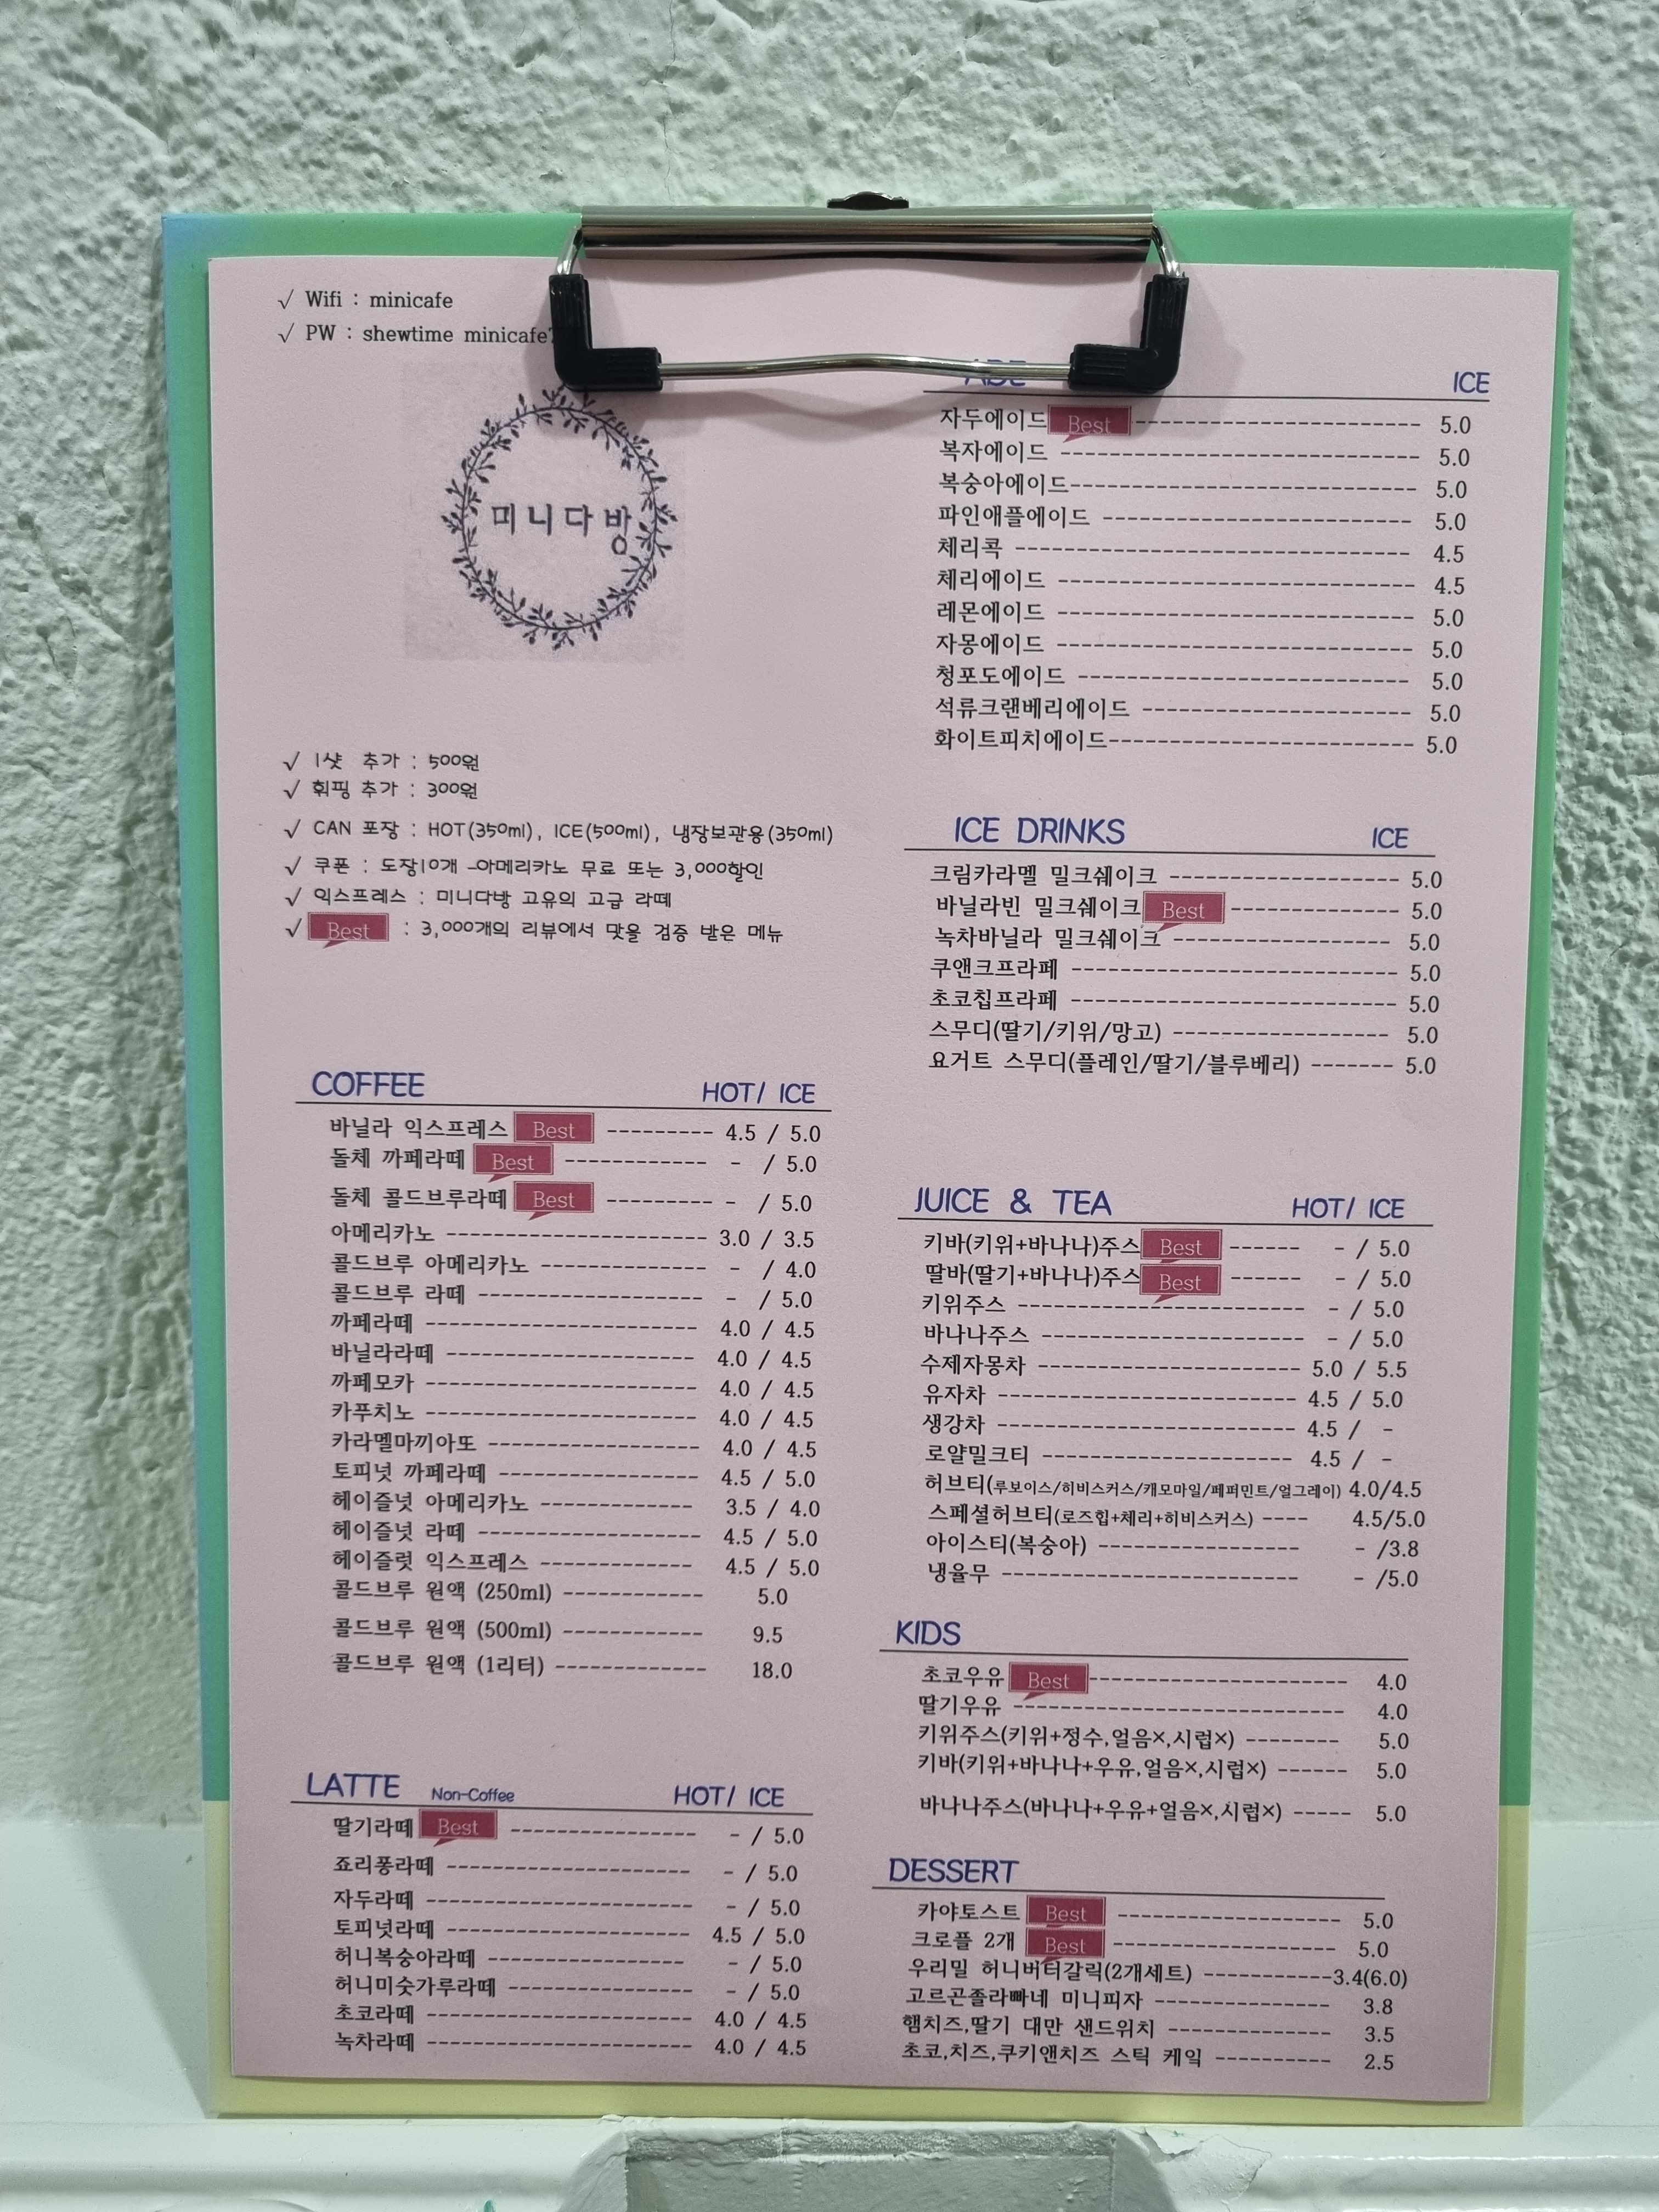 √ Wifi : minicafe
√ PW : shewtime minicafe
미니다방
√ 1샷 추가 : 500원
√ 휘핑 추가 : 300원
√ CAN 포장 : HOT(350ml), ICE(500ml), 냉장보관용(350ml)
√ 쿠폰 : 도장10개 -아메리카노 무료 또는 3,000할인
√ 익스프레스 : 미니다방 고유의 고급 라떼
√ Best : 3,000개의 리뷰에서 맛을 검증 받은 메뉴
COFFEE HOT/ ICE
바닐라 익스프레스 Best --------- 4.5 / 5.0
돌체 까페라떼 Best ------------ - / 5.0
돌체 콜드브루라떼 Best --------- - / 5.0
아메리카노 ----------------------- 3.0 / 3.5
콜드브루 아메리카노 --------------- - / 4.0
콜드브루 라떼 ------------------- - / 5.0
까페라떼 ----------------------- 4.0 / 4.5
바닐라라떼 --------------------- 4.0 / 4.5
까페모카 ----------------------- 4.0 / 4.5
카푸치노 ----------------------- 4.0 / 4.5
카라멜마끼아또 ------------------ 4.0 / 4.5
토피넛 까페라떼 ----------------- 4.5 / 5.0
헤이즐넛 아메리카노 -------------- 3.5 / 4.0
헤이즐넛 라떼 ------------------- 4.5 / 5.0
헤이즐럿 익스프레스 -------------- 4.5 / 5.0
콜드브루 원액 (250ml) ------------ 5.0
콜드브루 원액 (500ml) ------------ 9.5
콜드브루 원액 (1리터) ------------- 18.0
LATTE Non-Coffee HOT/ ICE
딸기라떼 Best ---------------- - / 5.0
죠리퐁라떼 --------------------- - / 5.0
자두라떼 ----------------------- - / 5.0
토피넛라떼 --------------------- 4.5 / 5.0
허니복숭아라떼 ----------------- - / 5.0
허니미숫가루라떼 --------------- - / 5.0
초코라떼 ----------------------- 4.0 / 4.5
녹차라떼 ----------------------- 4.0 / 4.5
ADE ICE
자두에이드 Best ------------------------ 5.0
복자에이드 ------------------------------ 5.0
복숭아에이드----------------------------- 5.0
파인애플에이드 -------------------------- 5.0
체리콕 --------------------------------- 4.5
체리에이드 ------------------------------ 4.5
레몬에이드 ------------------------------ 5.0
자몽에이드 ------------------------------ 5.0
청포도에이드 ---------------------------- 5.0
석류크랜베리에이드 ----------------------- 5.0
화이트피치에이드-------------------------- 5.0
ICE DRINKS ICE
크림카라멜 밀크쉐이크 -------------------- 5.0
바닐라빈 밀크쉐이크 Best -------------- 5.0
녹차바닐라 밀크쉐이크 ------------------- 5.0
쿠앤크프라페 --------------------------- 5.0
초코칩프라페 --------------------------- 5.0
스무디(딸기/키위/망고) ------------------ 5.0
요거트 스무디(플레인/딸기/블루베리) ------- 5.0
JUICE & TEA HOT/ ICE
키바(키위+바나나)주스 Best ------ - / 5.0
딸바(딸기+바나나)주스 Best ------ - / 5.0
키위주스 ------------------------ - / 5.0
바나나주스 ---------------------- - / 5.0
수제자몽차 ---------------------- 5.0 / 5.5
유자차 ------------------------- 4.5 / 5.0
생강차 ------------------------- 4.5 / -
로얄밀크티 ---------------------- 4.5 / -
허브티(루보이스/히비스커스/캐모마일/페퍼민트/얼그레이) 4.0/4.5
스페셜허브티(로즈힙+체리+히비스커스) ---- 4.5/5.0
아이스티(복숭아) ----------------- - /3.8
냉율무 ------------------------- - /5.0
KIDS
초코우유 Best---------------------- 4.0
딸기우유 ---------------------------- 4.0
키위주스(키위+정수,얼음×,시럽×) -------- 5.0
키바(키위+바나나+우유,얼음×,시럽×) ----- 5.0
바나나주스(바나나+우유+얼음×,시럽×) ----- 5.0
DESSERT
카야토스트 Best ------------------- 5.0
크로플 2개 Best ------------------- 5.0
우리밀 허니버터갈릭(2개세트) -----------3.4(6.0)
고르곤졸라빠네 미니피자 ---------------- 3.8
햄치즈,딸기 대만 샌드위치 -------------- 3.5
초코,치즈,쿠키앤치즈 스틱 케잌 ---------- 2.5